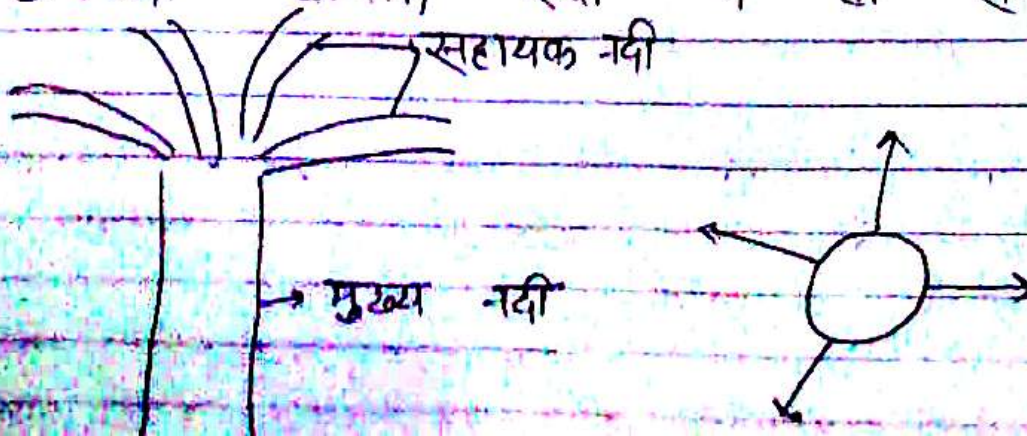 सहायक नदी
मुख्य नदी